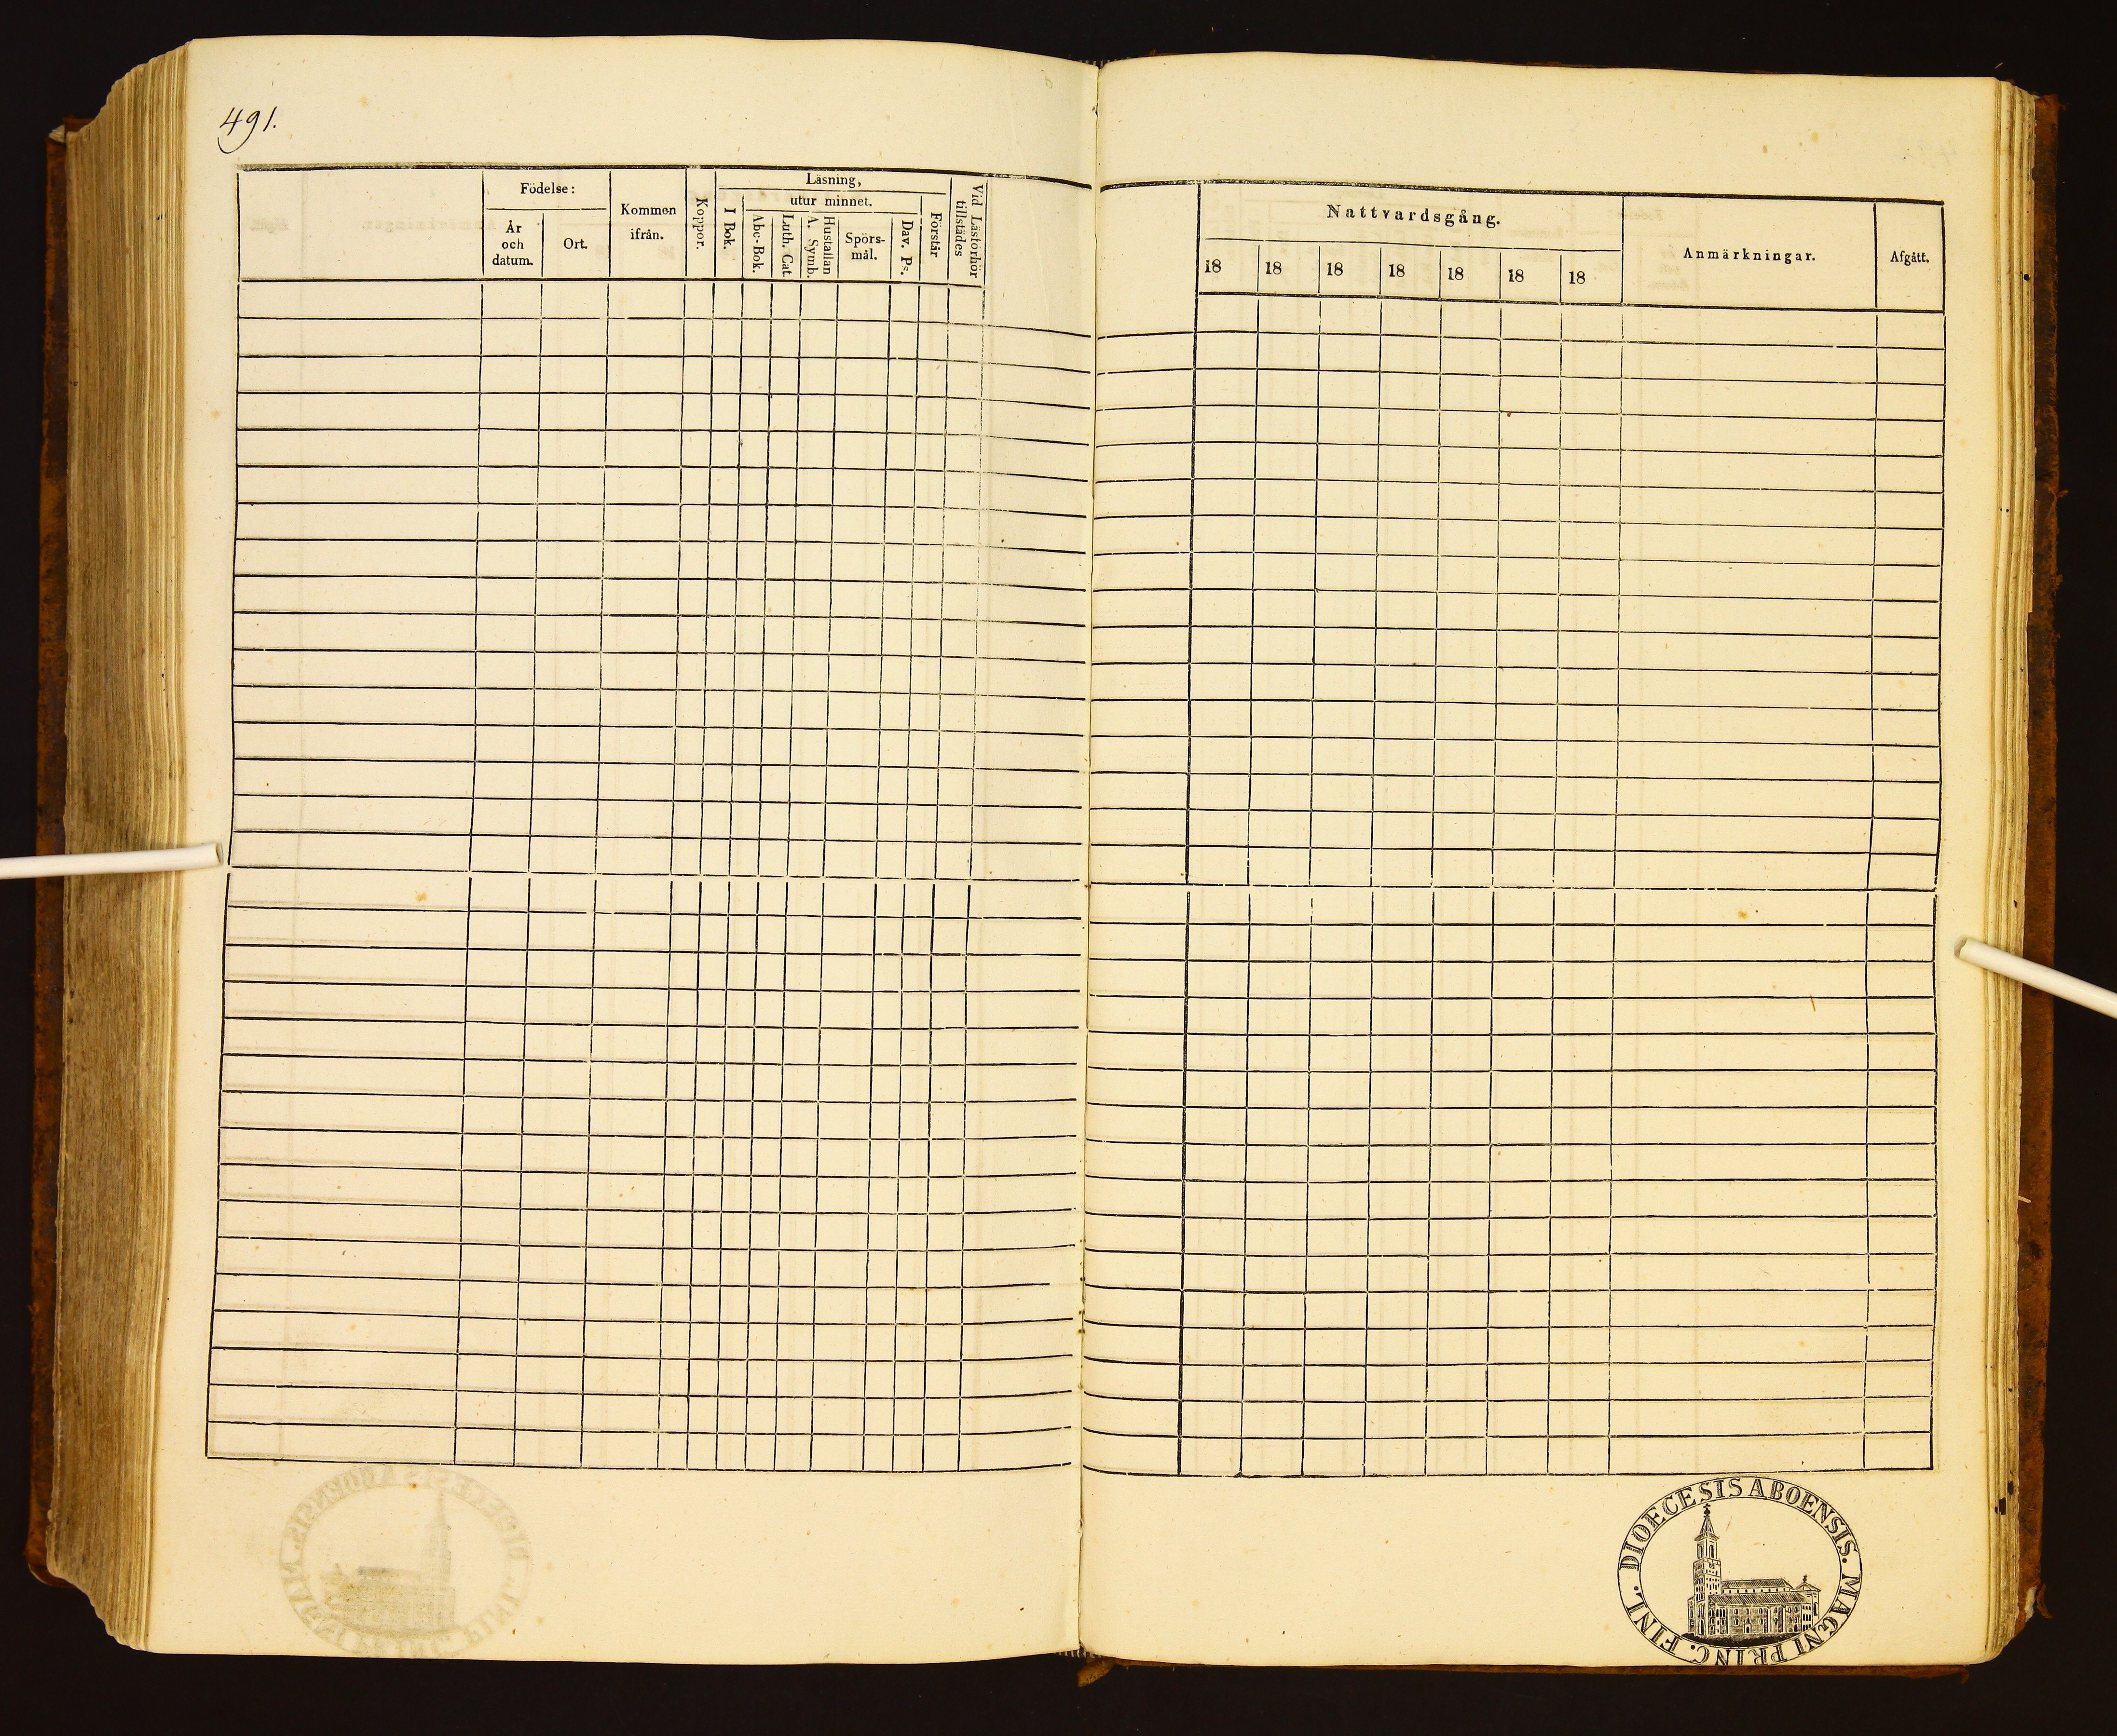 491.
Födelse:
År
och
datum.
Ort.
Kommen
ifrån.
Koppor.
Läsning,
utur minnet.
I Bok.
Abc-Bok.
Luth. Cat.
Hustaflan
A. Symb.
Spörs-
mål.
Dav. Ps.
Förstår
Vid Läsförhör
tillstädes
Nattvardsgång.
18 18 18 18 18 18 18
Anmärkningar.
Afgått.
DIOECESIS ABOENSIS. MAGNI PRINC. FINL.